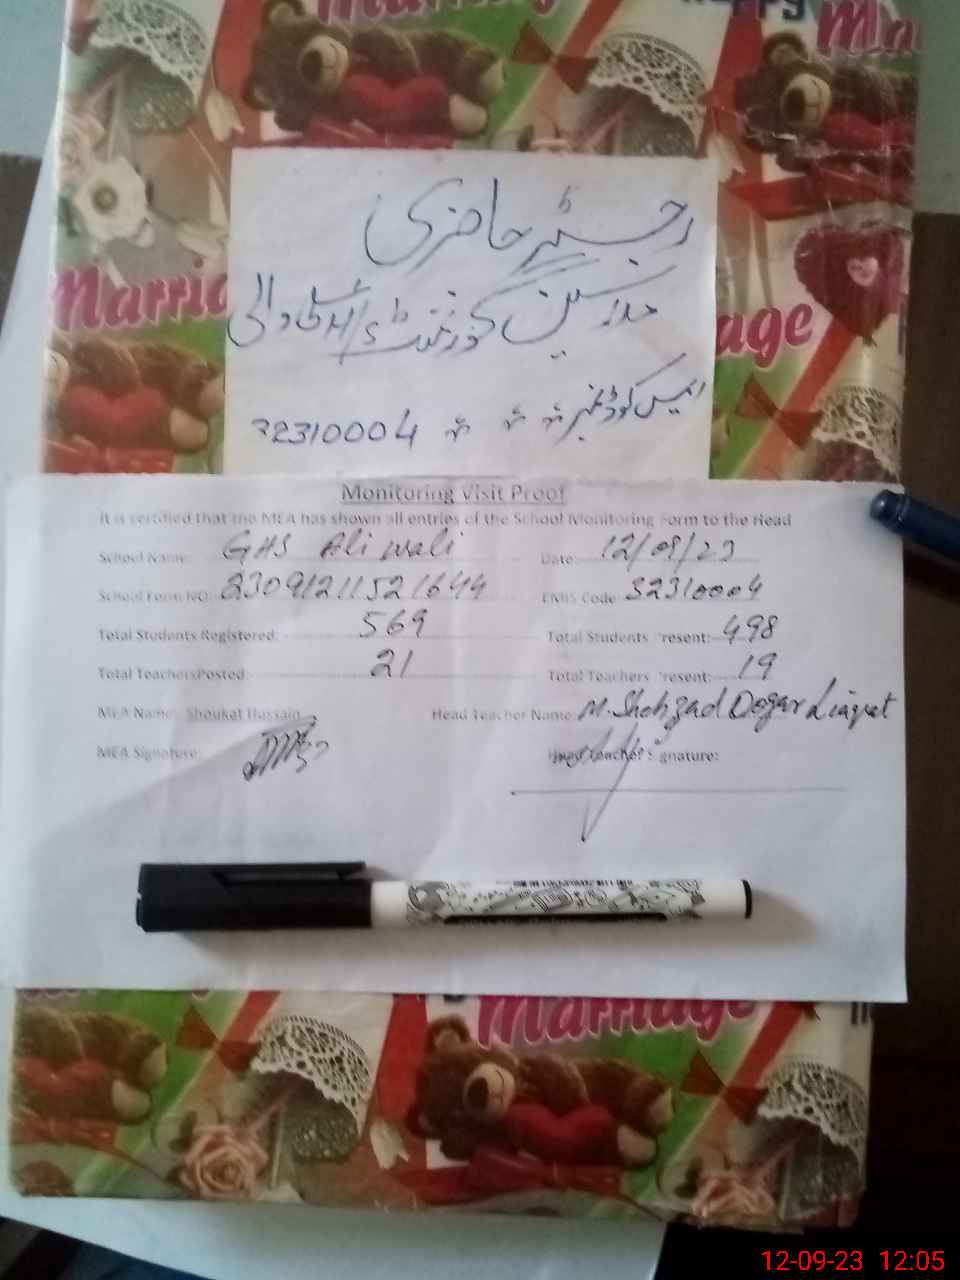 Marriage
Happy
Ma
رجسٹر حاضری
Marria
age
ملازمین گورنمنٹ ہائی سکول علی والی
ایمس کوڈ نمبر 32310004
Monitoring Visit Proof
It is certified that the MEA has shown all entries of the School Monitoring Form to the Head
School Name: GHS Ali wali Date: 12/09/23
School Form NO: 23091211521644 EMIS Code: 32310004
Total Students Registered: 569 Total Students Present: 498
Total TeachersPosted: 21 Total Teachers Present: 19
MEA Name: Shoukat Hussain Head Teacher Name: M. Shehzad Dogar Liaqat
MEA Signature: Head Teacher Signature:
Marriage
12-09-23 12:05